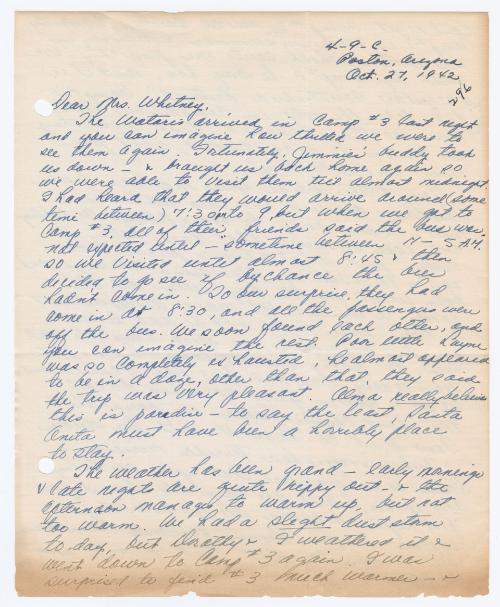 4-9-C-
Poston, Arizona
Oct. 27, 1942
296
Dear Mrs. Whitney,
The Wataris arrived in Camp #3 last night
and you can imagine how thrilled we were to
see them again. Fortunately, Jimmie's buddy took
us down - & brought us back home again so
we were able to visit them till almost midnight.
I had heard that they would arrive around (some
time between) 7:30 to 9, but when we got to
Camp #3, all of their friends said the bus was
not expected until - sometime between 11 - 5 A.M.
so we visited until almost 8:45 & then
decided to go see if by chance the bus
hadn't come in. To our surprise, they had
come in at 8:30, and all the passengers were
off the bus. We soon found each other, and
you can imagine the rest. Poor little Wayne
was so completely exhausted, he almost appeared
to be in a daze, other than that, they said
the trip was very pleasant. Alma really believes
this is paradise - to say the least, Santa
Anita must have been a horrible place
to stay.
The weather has been grand - early mornings
& late nights are quite nippy out - & the
afternoon manages to warm up, but not
too warm. We had a slight dust storm
to-day, but Dorothy & I weathered it &
went down to Camp #3 again. I was
surprised to find #3 much warmer - &